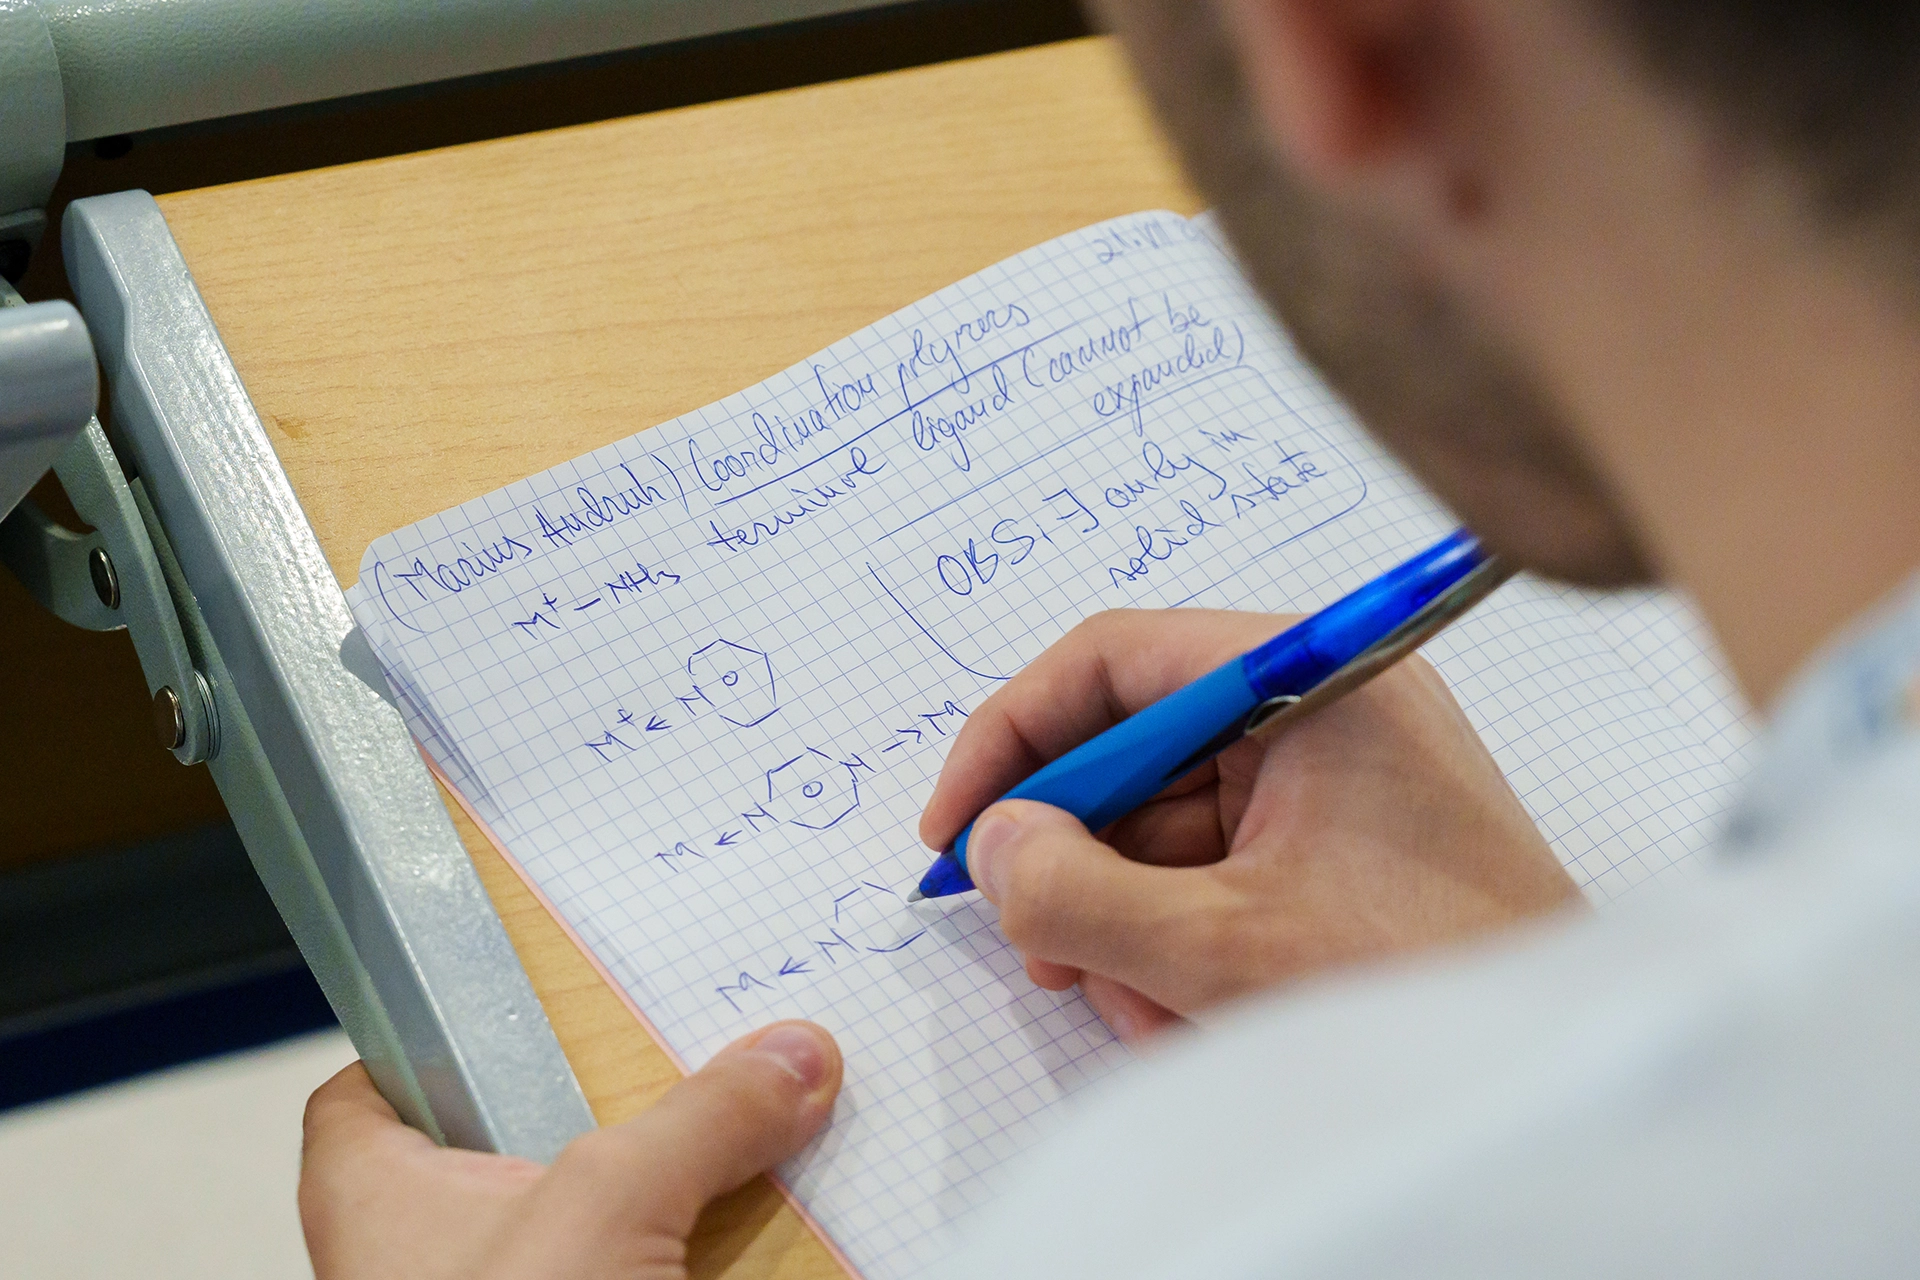 21.VIII
(Marius Andruh) Coordination polymers
M⁺ – NH₃ terminal ligand (cannot be
expanded)
OBS: ∃ only in
solid state
M⁺ ← N
M ← N N → M
M ← N